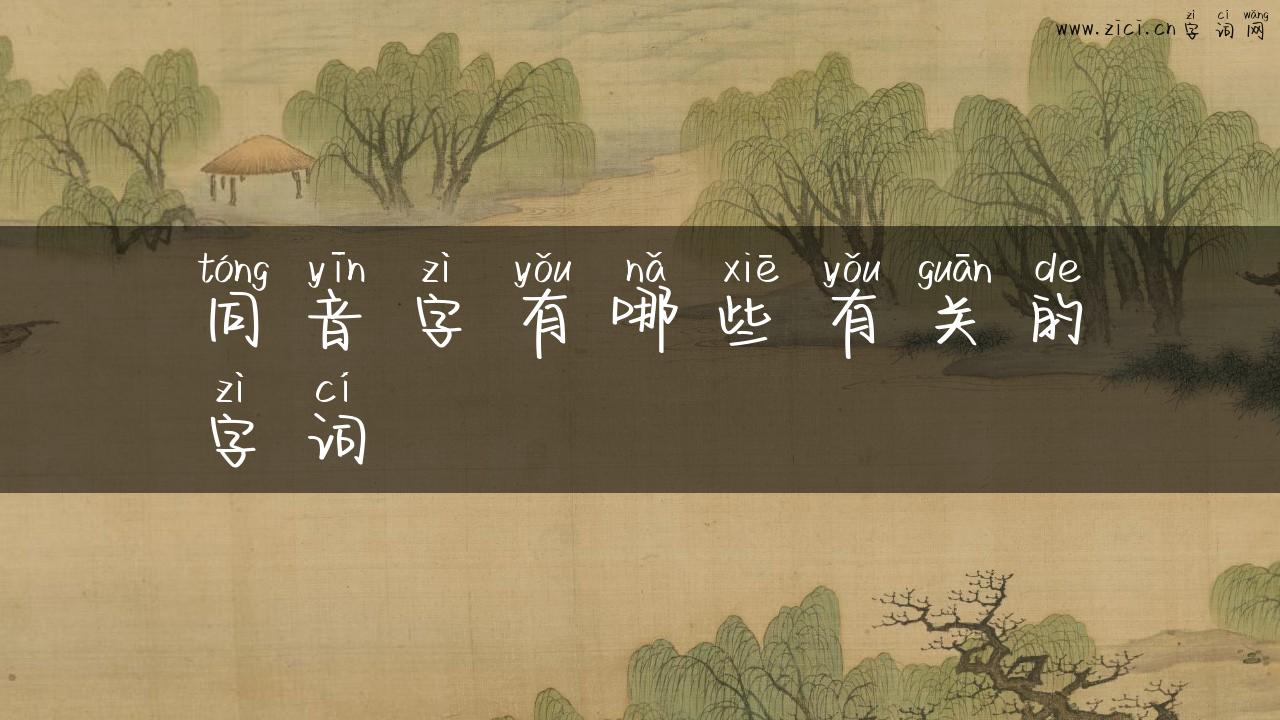 zì cí wǎng
www.zici.cn 字 词 网
tóng yīn zì yǒu nǎ xiē yǒu guān de
同 音 字 有 哪 些 有 关 的
zì cí
字 词